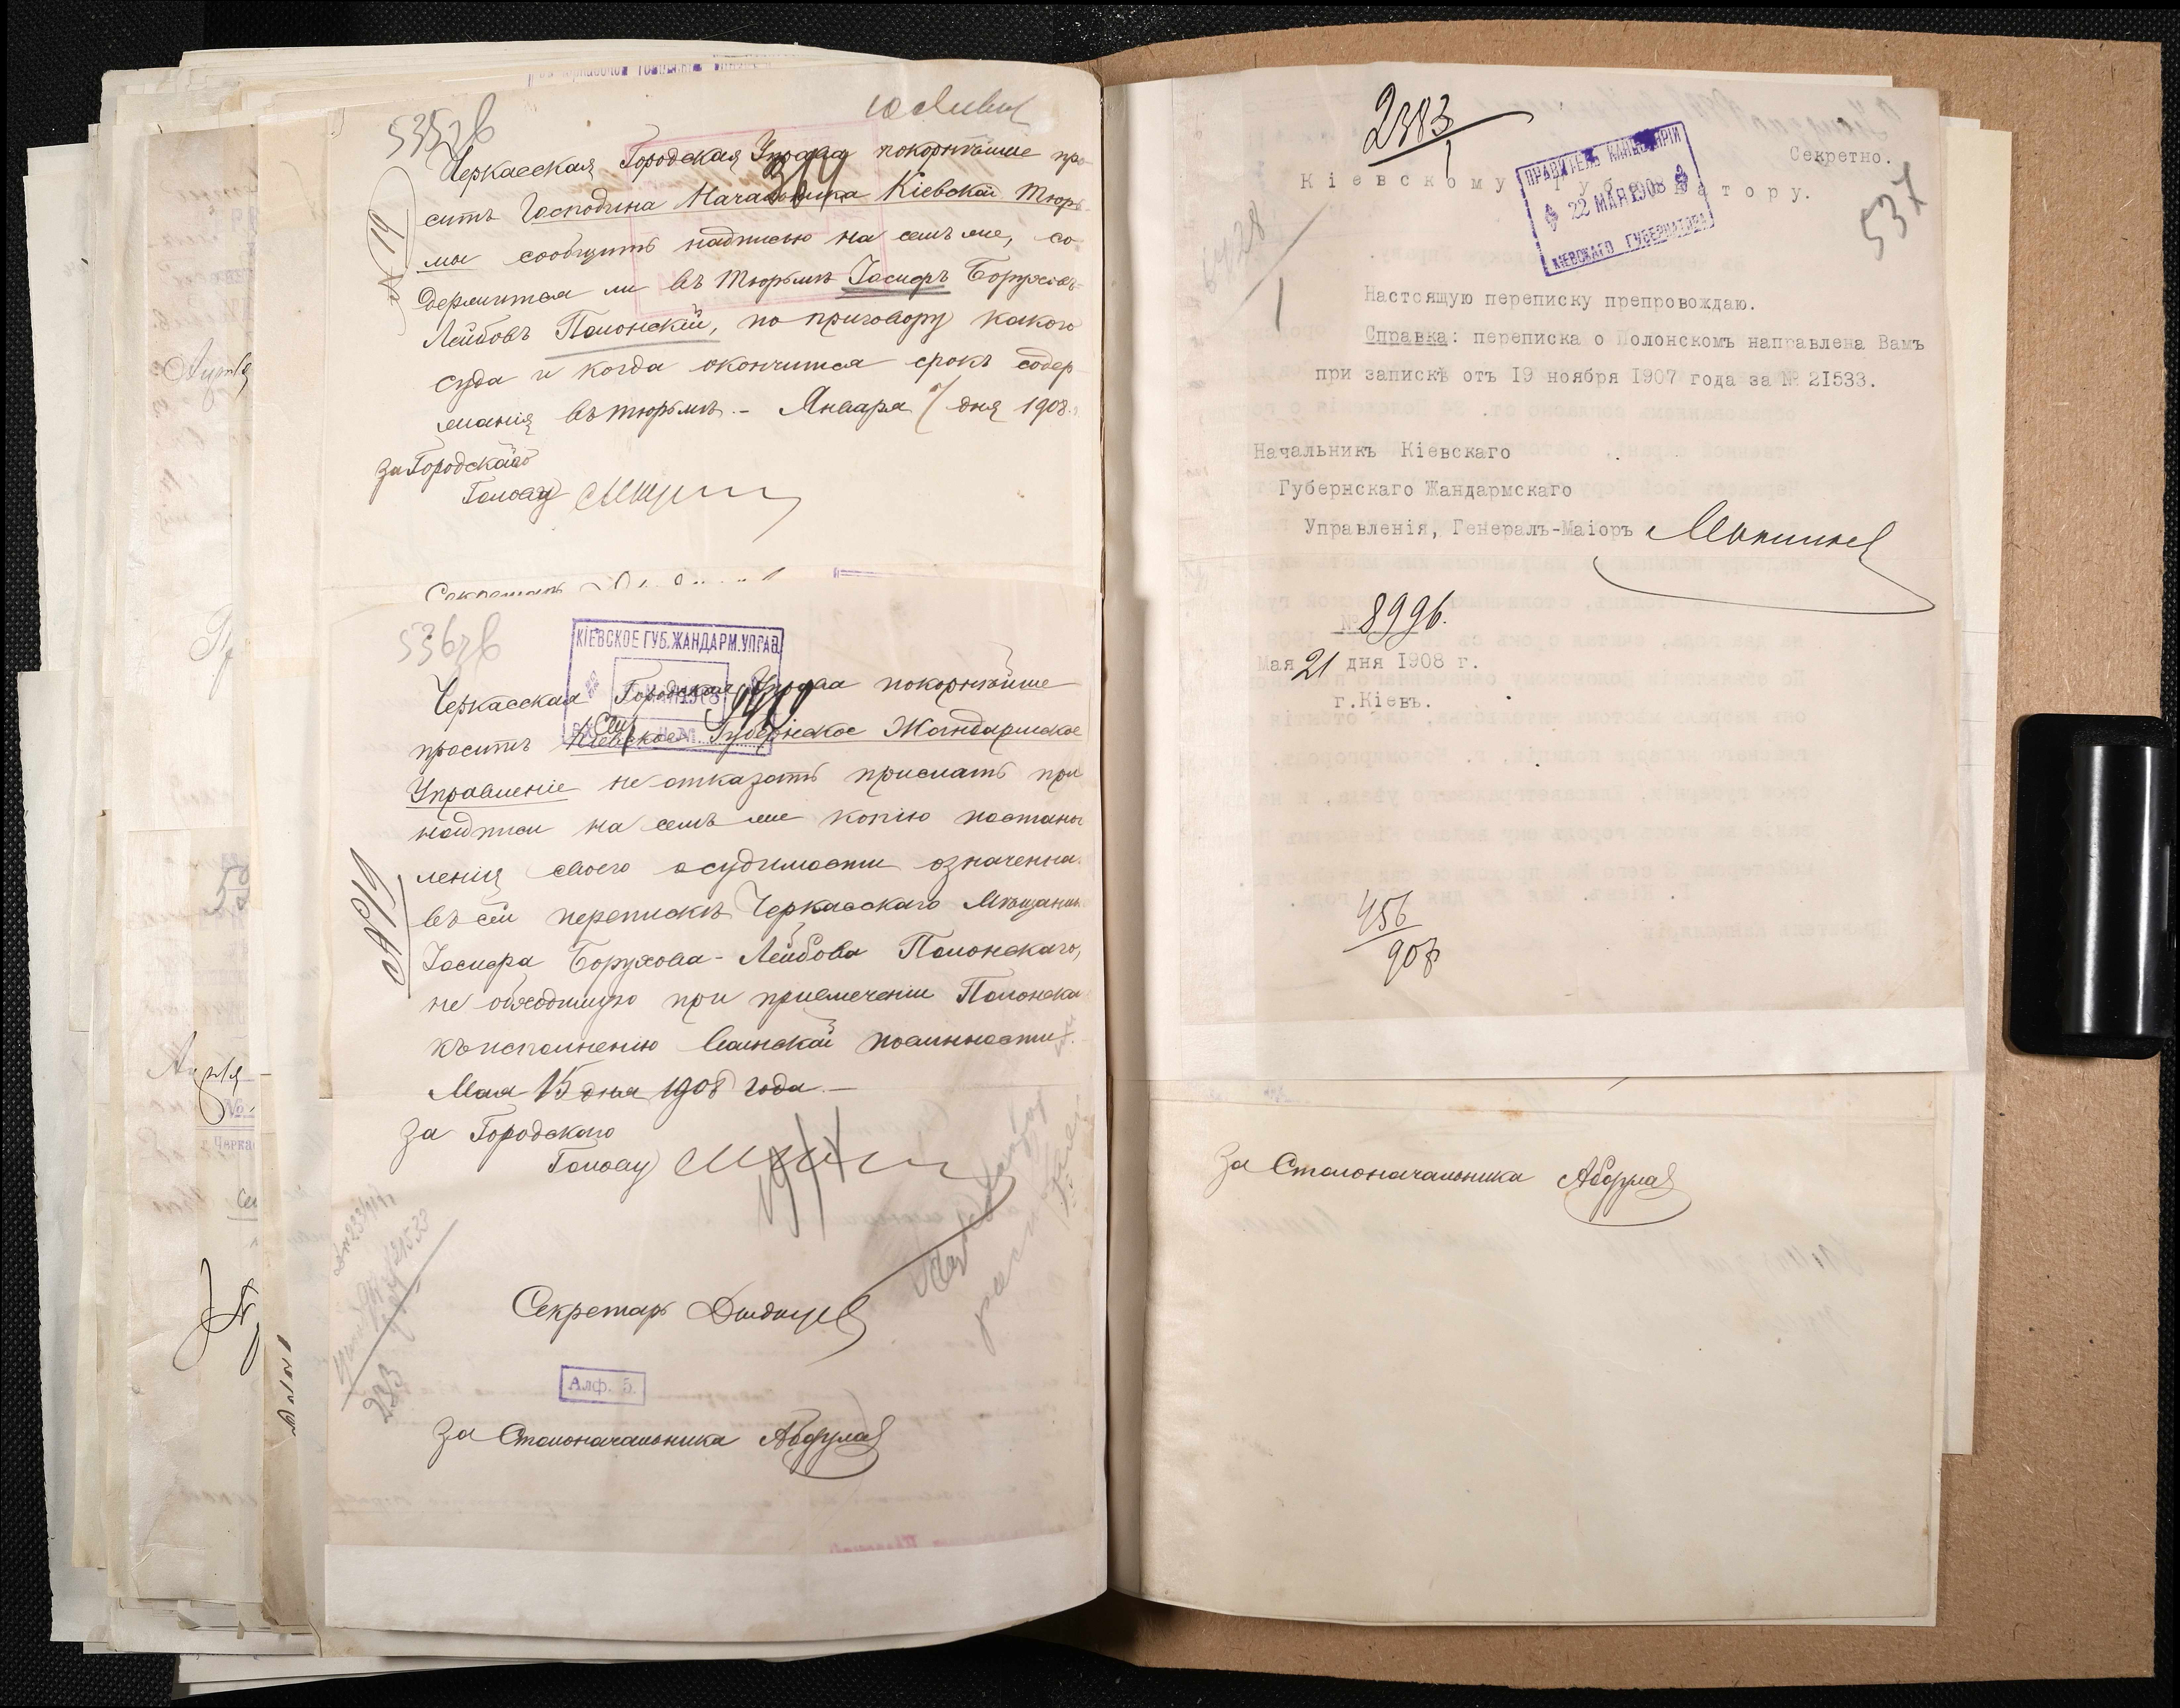 535 зв
Черкасская Городская Управа покорнѣйше про-
ситъ Господина Начальника Кіевской Тюрь-
мы сообщить надписью на семъ же, со-
держится ли въ Тюрьмѣ Іосифъ Боруховъ-
Лейбовъ Полонскій, по приговору какого
суда и когда окончится срокъ содер
жанія въ тюрьмѣ. – Января 7 дня 1908
№ 19
За Городского
Голову
Секретарь
536 зв
КІЕВСКОЕ ГУБ. ЖАНДАРМ. УПРАВ
Черкасская Городская Управа покорнѣйше
проситъ Кіевское Губернское Жандармское
Управленіе не отказать прислать при
надписи на семъ же копію постанов
ленія своего о судимости означенна
въ сей перепискѣ Черкасскаго Мѣщанина
Іосифа Борухова-Лейбова Полонскаго,
не обходимую при привлеченіи Полонска
къ исполненію воинской повинности.
Мая 15 дня 1908 года. –
№ 19
За Городского
Голову
Секретарь
Алф. 5.
За Столоначальника
2383
Секретно.
Кіевскому Губернатору.
ПРАВИТЕЛЬ КАНЦЕЛЯРІИ
22 МАЯ 1908
КІЕВСКАГО ГУБЕРНАТОРА
537
6428
1
Настоящую переписку препровождаю.
Справка: переписка о Полонскомъ направлена Вамъ
при запискѣ отъ 19 ноября 1907 года за № 21533.
Начальникъ Кіевскаго
Губернскаго Жандармскаго
Управленія, Генералъ-Маіоръ
№ 8996.
Мая 21 дня 1908 г.
г. Кіевъ.
456
908
За Столоначальника